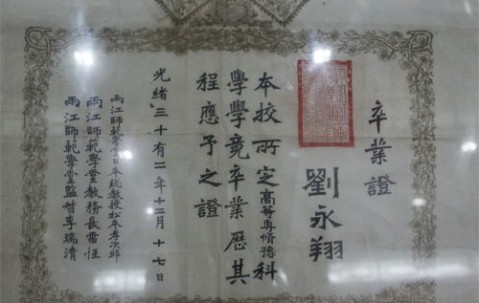 卒業證
劉永翔
本校所定高等專脩豫科
學學竟卒業歷其
程應予之證
光緒三十有二年十二月十七日
兩江師範學堂日本總教授松本孝次郎
兩江師範學堂教務長雷恒
兩江師範學堂監督李瑞清